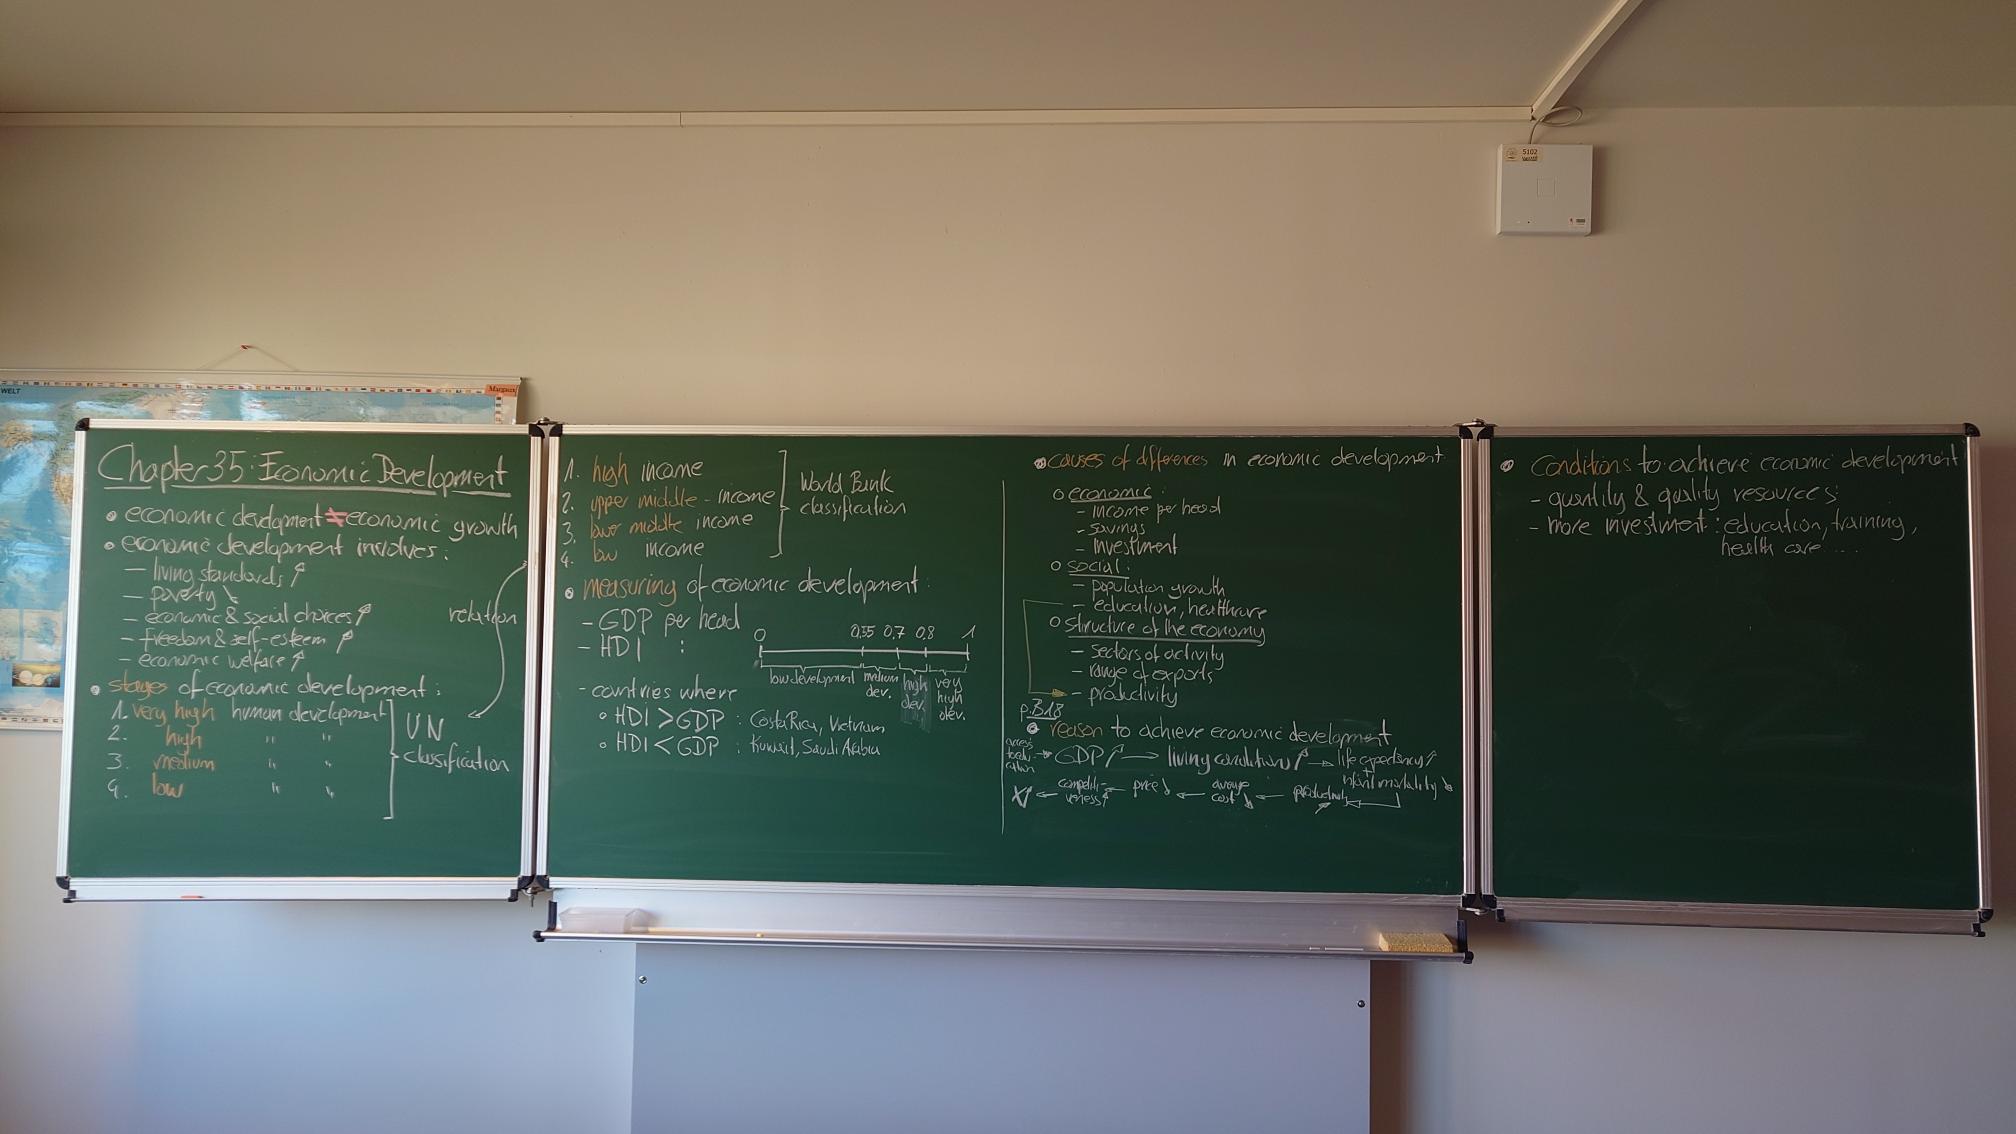 WELT
Margaux
5102
Chapter 35: Economic Development
• economic development ≠ economic growth
• economic development involves:
– living standards ↑
– poverty ↘
– economic & social choices ↑
– freedom & self-esteem ↑
– economic welfare ↑
relation
• stages of economic development:
1. very high human development
2. high " "
3. medium " "
4. low " "
UN
classification
1. high income
2. upper middle - income
3. lower middle income
4. low income
World Bank
classification
• measuring of economic development:
– GDP per head
– HDI :
0 0,55 0,7 0,8 1
low development
medium dev.
high dev.
very high dev.
– countries where
• HDI > GDP : Costa Rica, Vietnam
• HDI < GDP : Kuwait, Saudi Arabia
• causes of differences in economic development
o economic:
– income per head
– savings
– investment
o social:
– population growth
– education, healthcare
o structure of the economy
– sectors of activity
– range of exports
– productivity
p. 318
• reason to achieve economic development
access to education → GDP ↑ → living conditions ↑ → life expectancy ↑
+
infant mortality ↘
X↑ ← competitiveness ↑ ← price ↓ ← average cost ↓ ← productivity ↑
• Conditions to achieve economic development
– quantity & quality resources
– more investment: education, training,
health care ....